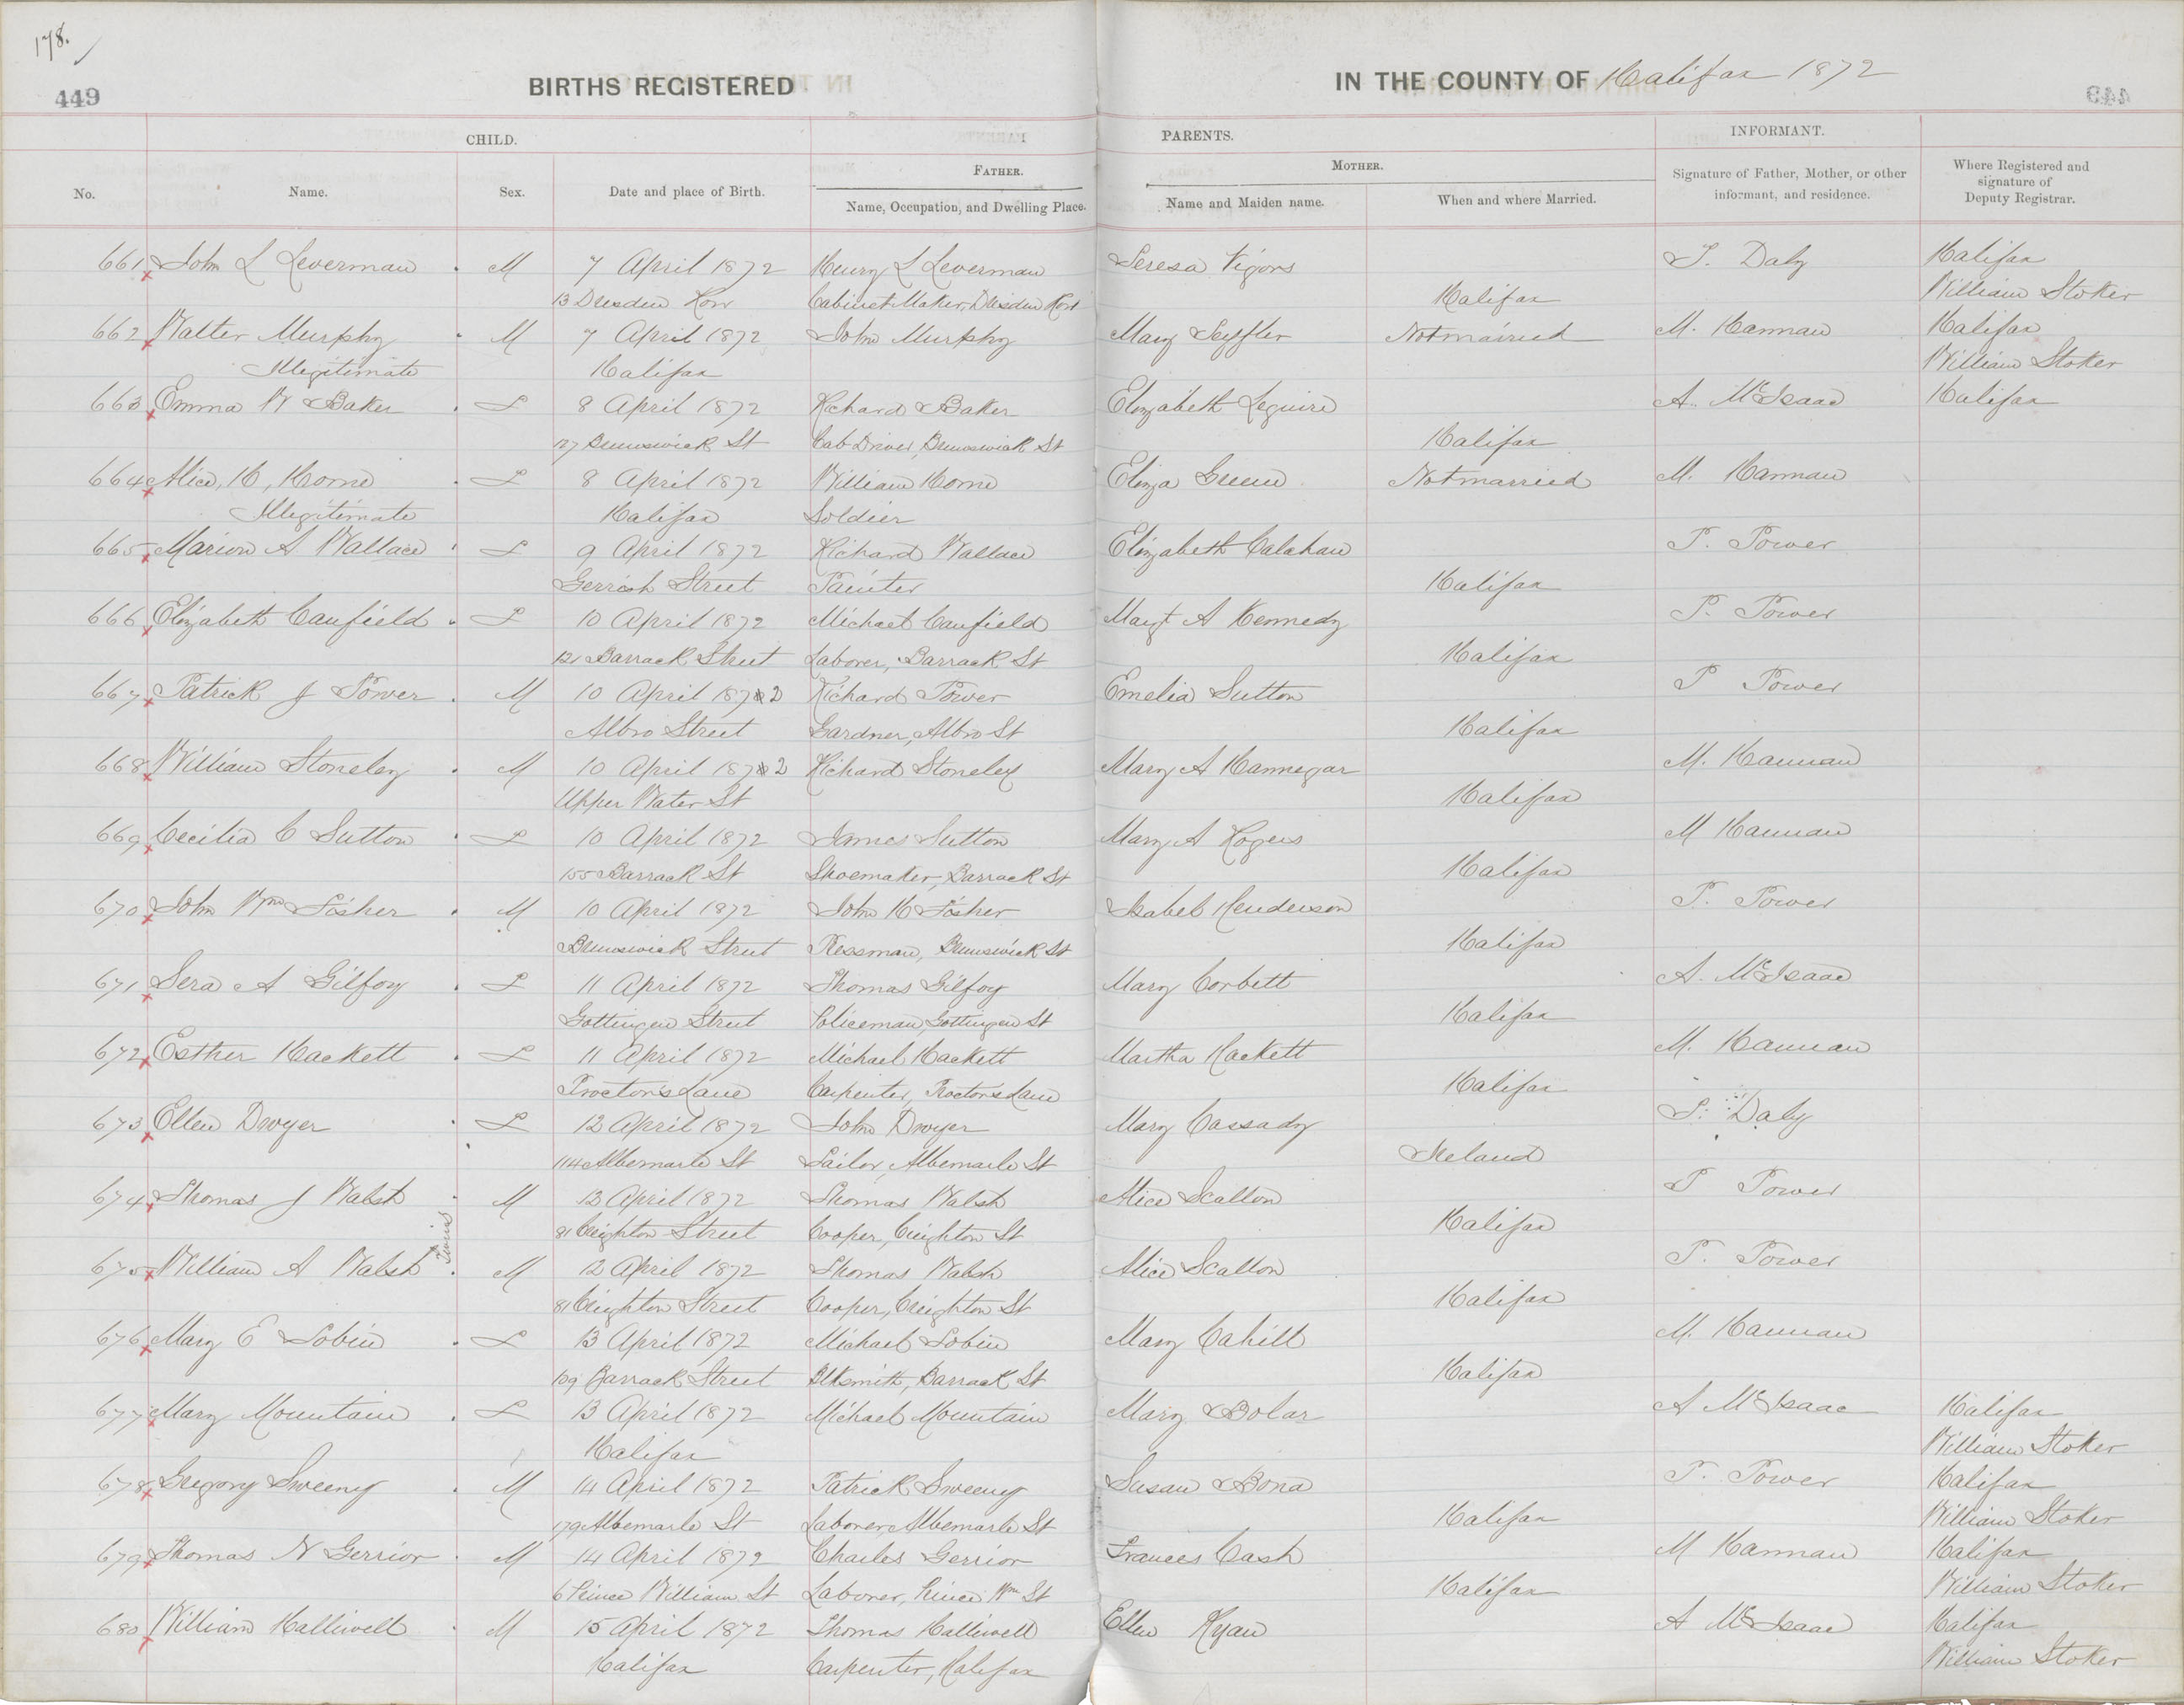 178.
449
BIRTHS REGISTERED
IN THE COUNTY OF Halifax 1872
CHILD.
PARENTS.
INFORMANT.
No.
Name.
Sex.
Date and place of Birth.
FATHER.
Name, Occupation, and Dwelling Place.
MOTHER.
Name and Maiden name.
When and where Married.
Signature of Father, Mother, or other
informant, and residence.
Where Registered and
signature of
Deputy Registrar.
661 John L Leverman M 7 April 1872 Henry L Leverman Teresa Vigors T. Daly Halifax
13 Dresden Row Cabinet Maker, Dresden Row Halifax William Stoker
662 Walter Murphy M 7 April 1872 John Murphy Mary Not married M. Hannan Halifax
Illegitimate Halifax William Stoker
663 Emma W Baker F 8 April 1872 Richard Baker Elizabeth Leguire A. McIsaac Halifax
127 Brunswick St Cab Driver, Brunswick St Halifax
664 Alice, H, Horne F 8 April 1872 William Horne Eliza Green Not married M. Hannan
Illegitimate Halifax Soldier
665 Marion A Wallace F 9 April 1872 Richard Wallace Elizabeth Calahan P. Power
Gerrish Street Painter Halifax
666 Elizabeth Caufield F 10 April 1872 Michael Caufield Margt A Kennedy P. Power
121 Barrack Street Laborer, Barrack St Halifax
667 Patrick J Power M 10 April 1872 Richard Power Emelia Sutton P Power
Albro Street Gardner, Albro St Halifax
668 William Stoneley M 10 April 1872 Richard Stoneley Mary A Hannegar M. Hannan
Upper Water St Halifax
669 Cecilia C Sutton F 10 April 1872 James Sutton Mary A Rogers M Hannan
155 Barrack St Shoemaker, Barrack St Halifax
670 John Wm Fisher M 10 April 1872 John H Fisher Isabel Henderson P. Power
Brunswick Street Pressman, Brunswick St Halifax
671 Sera A Gilfoy F 11 April 1872 Thomas Gilfoy Mary Corbett A. McIsaac
Gottingen Street Policeman, Gottingen St Halifax
672 Esther Hackett F 11 April 1872 Michael Hackett Martha Hackett M. Hannan
Proctor's Lane Carpenter, Proctor's Lane Halifax
673 Ellen Dwyer F 12 April 1872 John Dwyer Mary Cassady T. Daly
114 Albemarle St Tailor, Albemarle St Ireland
674 Thomas J Walsh M 12 April 1872 Thomas Walsh Alice Scallon P Power
Twins
81 Creighton Street Cooper, Creighton St Halifax
675 William A Walsh M 12 April 1872 Thomas Walsh Alice Scallon P. Power
81 Creighton Street Cooper, Creighton St Halifax
676 Mary E Tobin F 13 April 1872 Michael Tobin Mary Cahill M. Hannan
109 Barrack Street Blksmith, Barrack St Halifax
677 Mary Mountain F 13 April 1872 Michael Mountain Mary Bolar A McIsaac Halifax
Halifax William Stoker
678 Gregory Sweeny M 14 April 1872 Patrick Sweeny Susan Bona P. Power Halifax
179 Albemarle St Laborer, Albemarle St Halifax William Stoker
679 Thomas N Gerrior M 14 April 1872 Charles Gerrior Frances Cash M Hannan Halifax
6 Prince William St Laborer, Prince Wm St Halifax William Stoker
680 William Halliwell M 15 April 1872 Thomas Halliwell Ellen Ryan A McIsaac Halifax
Halifax Carpenter, Halifax William Stoker